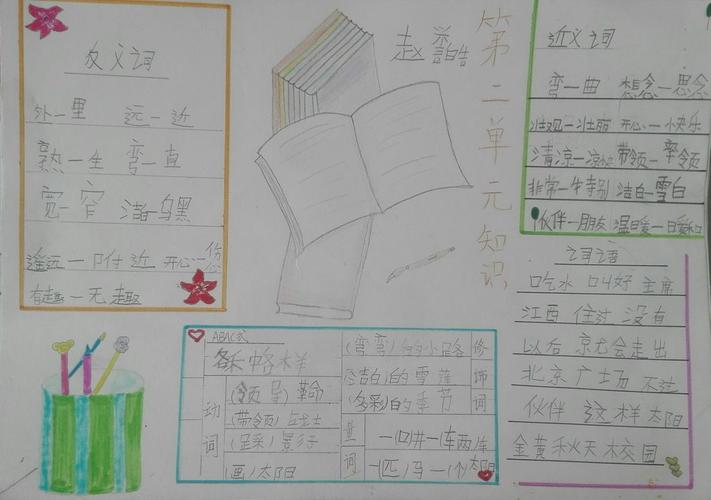 反义词
外一里 远一近
熟一生 弯一直
宽一窄 洁白一乌黑
遥远一附近 开心一伤心
有趣一无趣
赵
第二单元知识
近义词
弯一曲 想念一思念
壮观一壮丽 开心一快乐
清凉一凉快 带领一率领
非常一特别 洁白一雪白
伙伴一朋友 温暖一暖和
词语
吃水 叫好 主席
江西 住过 没有
以后 京 会 走出
北京 广场 不过
伙伴 这样 太阳
金黄 秋天 校园
ABAC式
各种各样
动词
(领导)革命
(带领)战士
(踩)影子
(画)太阳
修饰词
(弯弯)的小路
(洁白)的雪莲
(多彩)的季节
量词
一(口)井 一(辆)车
一(匹)马 一(个)太阳